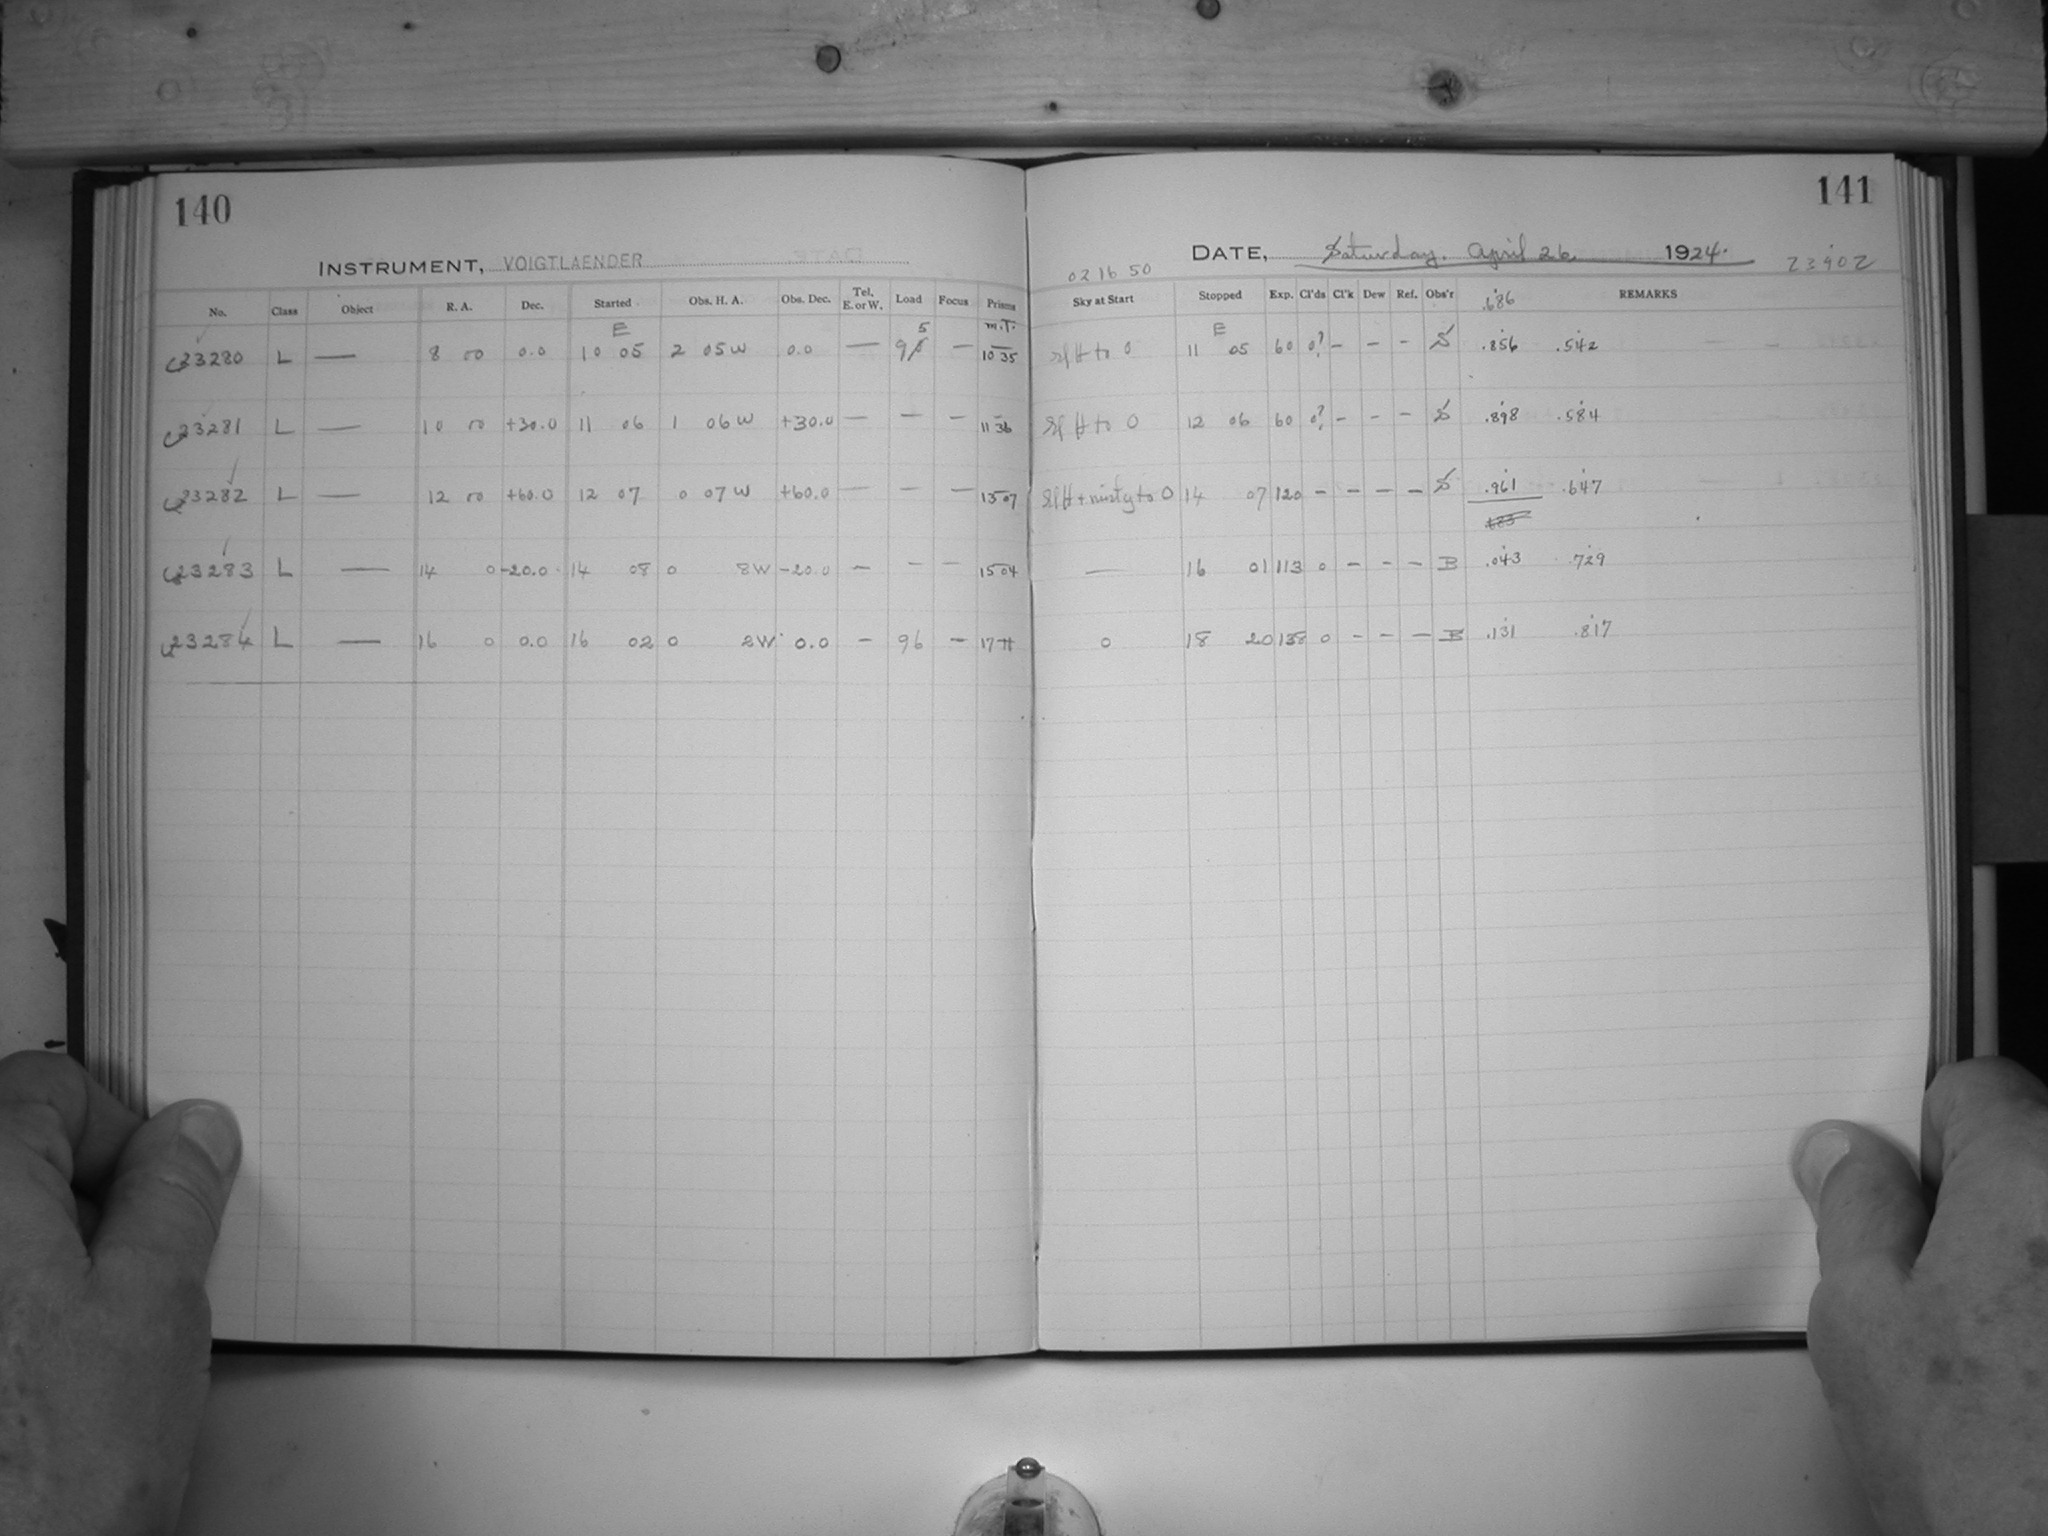 140
INSTRUMENT, VOIGTLAENDER
No. Class Object R. A. Dec. Started Obs. H. A. Obs. Dec. Tel. E. or W. Load Focus Prisms
E 5 m.T.
23280 L — 8 00 0.0 10 05 2 05 W 0.0 — 96 — 10 35
23281 L — 10 00 +30.0 11 06 1 06 W +30.0 — — — 11 36
23282 L — 12 00 +60.0 12 07 0 07 W +60.0 — — — 13 07
23283 L — 14 0 -20.0 14 08 0 8W -20.0 — — — 15 04
23284 L — 16 0 0.0 16 02 0 2W 0.0 — 96 — 17 11
141
DATE, Saturday. April 26 1924.
02 16 50 23902
Sky at Start Stopped Exp. Cl'ds Cl'k Dew Ref. Obs'r .686 REMARKS
E
Sl H to 0 11 05 60 0? — — — S .856 .542
Sl H to 0 12 06 60 0? — — — S .898 .584
Sl H + misty to 0 14 07 120 — — — — S .961 .647
— 16 01 113 0 — — — B .043 .729
0 18 20 138 0 — — — B .131 .817